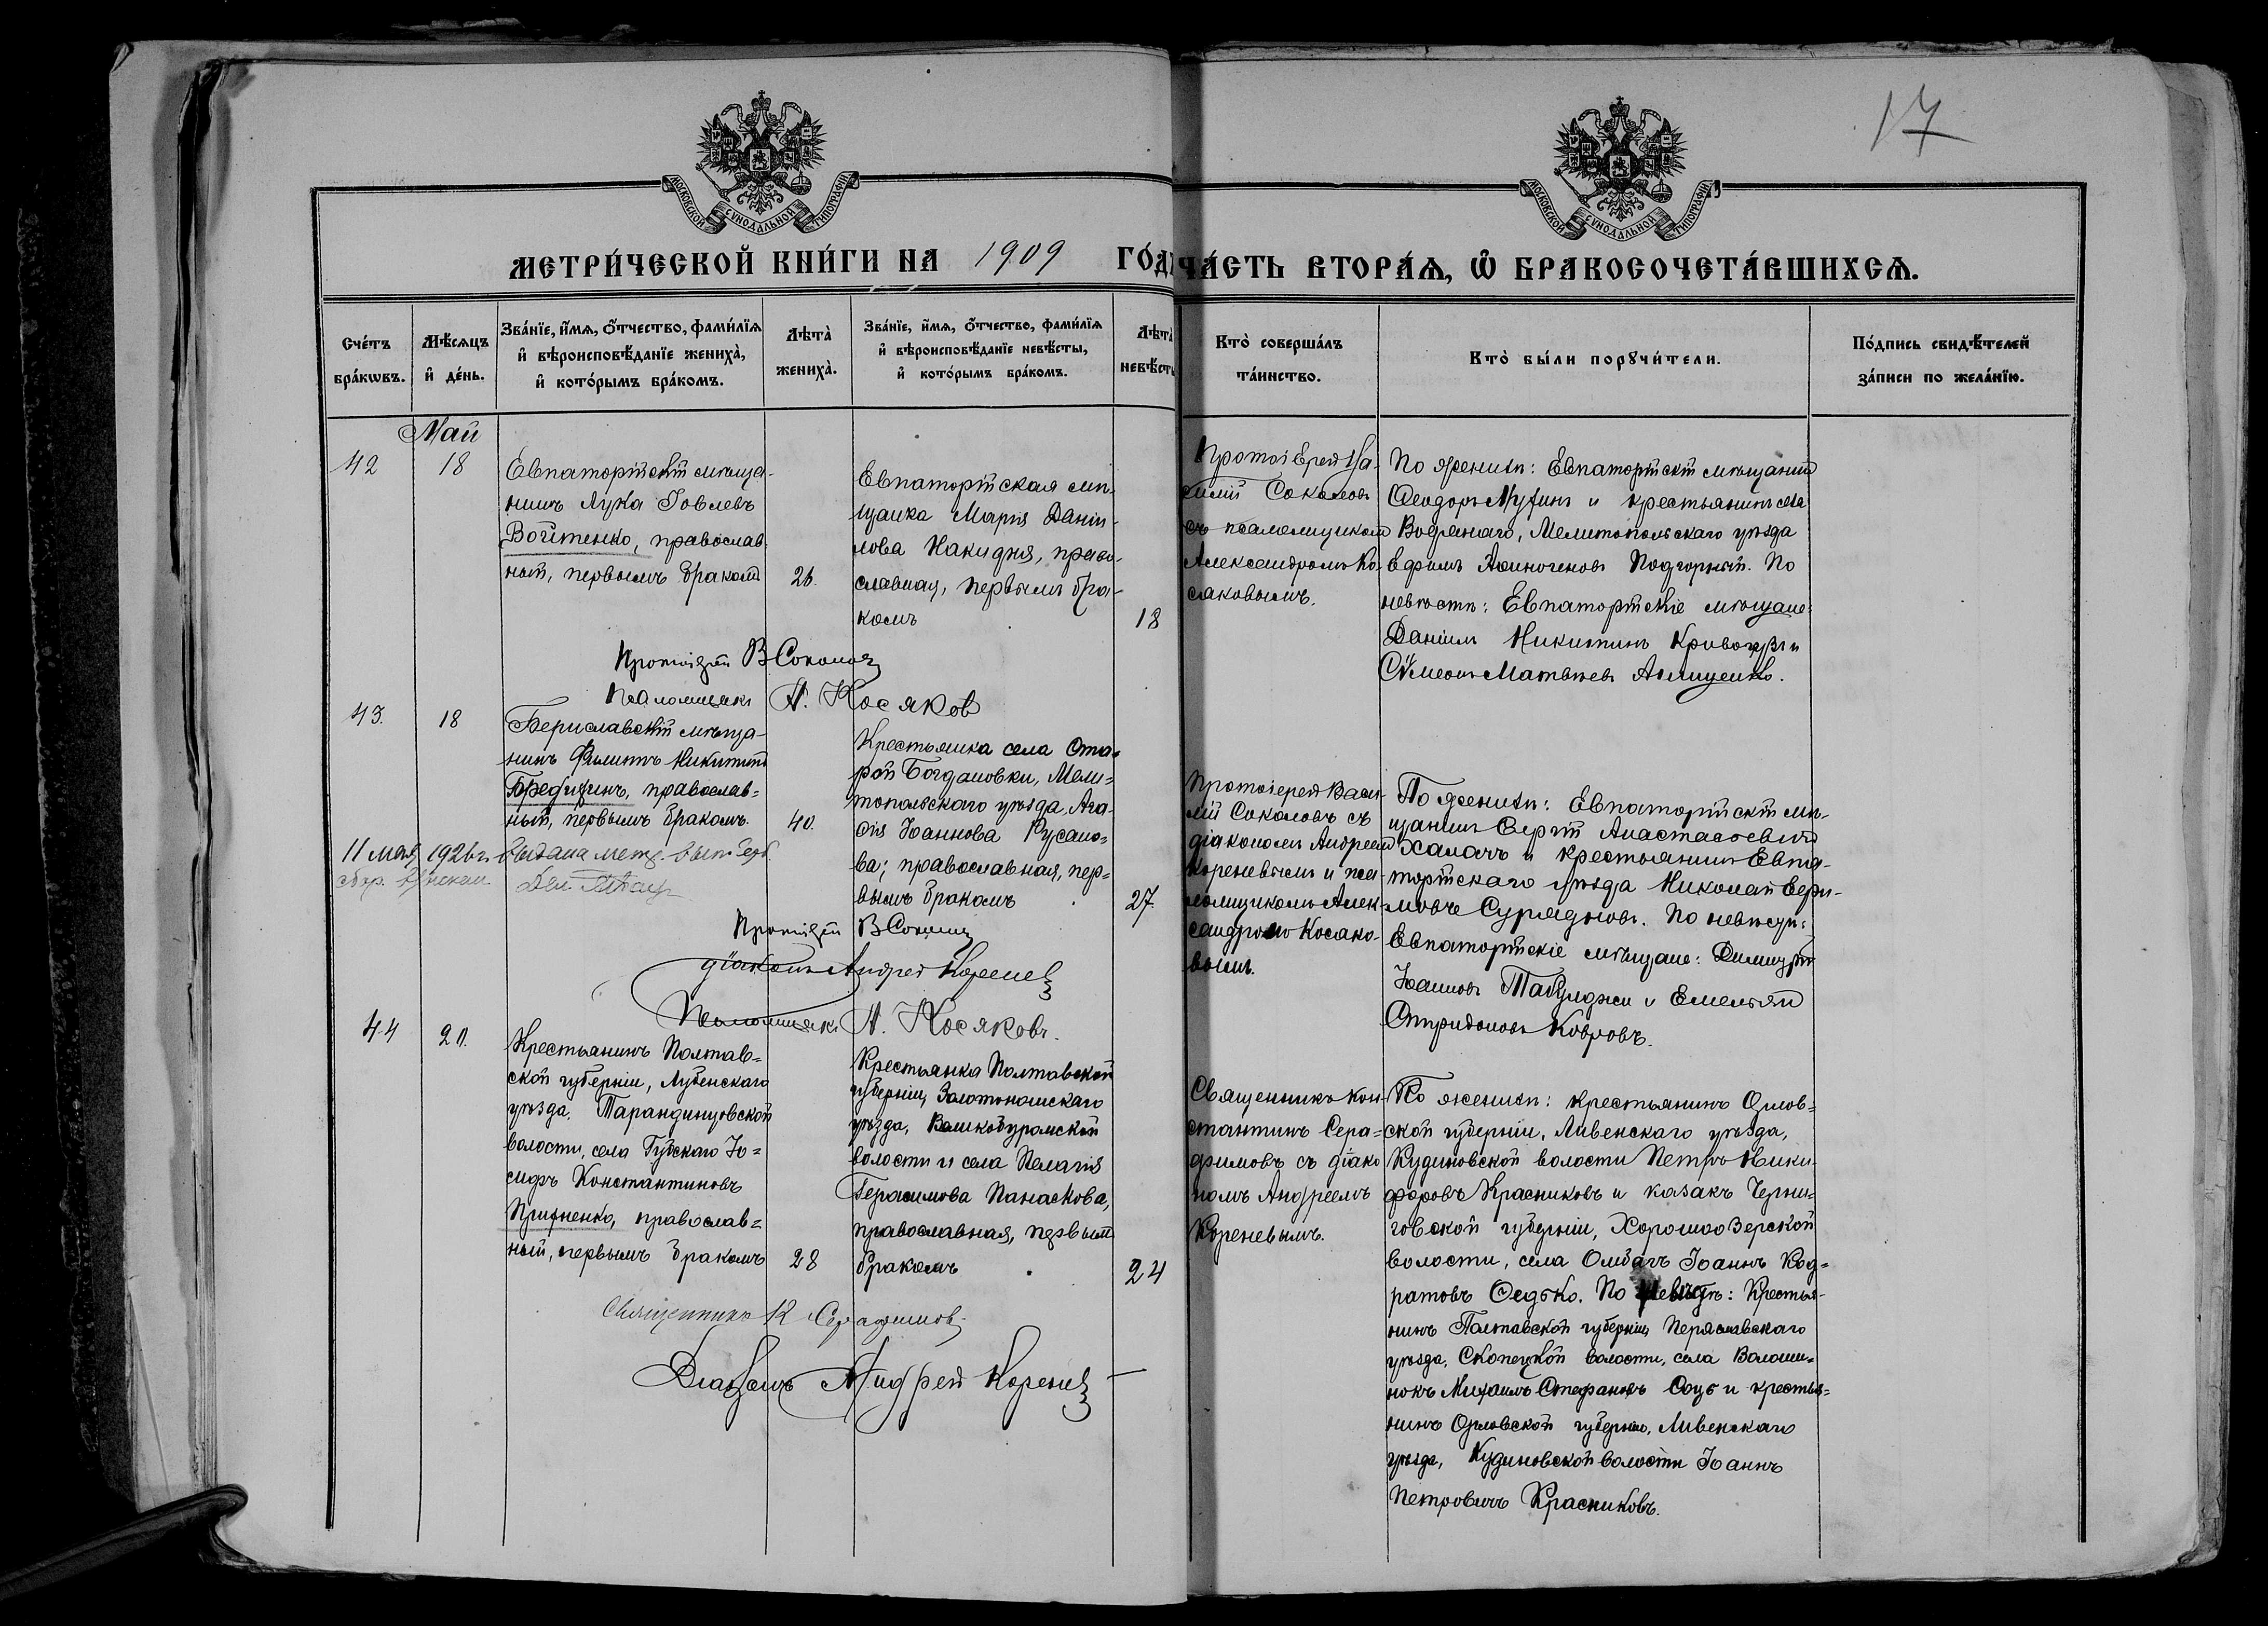 17
МОСКОВСКОЙ СѴНОДАЛЬНОЙ ТИПОГРАФІИ
МОСКОВСКОЙ СѴНОДАЛЬНОЙ ТИПОГРАФІИ
МЕТРИ́ЧЕСКОЙ КНИ́ГИ НА 1909 ГО́Д
ЧА́СТЬ ВТОРА́Ѧ, Ѽ БРАКОСОЧЕТА́ВШИХСѦ.
Сче́тъ
бра́кѡвъ.
Мѣ́сѧцъ
и҆ де́нь.
Зва́нїе, и҆́мѧ, ѻ҆́тчество, фами́лїѧ
и҆ вѣроисповѣ́данїе жениха̀,
и҆ кото́рымъ бра́комъ.
Лѣта̀
жениха̀.
Зва́нїе, и҆́мѧ, ѻ҆́тчество, фами́лїѧ
и҆ вѣроисповѣ́данїе невѣ́сты,
и҆ кото́рымъ бра́комъ.
Лѣта̀
невѣ́сты
Кто̀ соверша́лъ
та́инство.
Кто̀ бы́ли порꙋчи́тели.
По́дпись свидѣ́телей
за́писи по жела́нїю.
Май
42
18
Евпаторійскій мѣща-
нинъ Лука Іовлевъ
Войтенко, православ
ный, первымъ бракомъ
26.
Евпаторійская мѣ-
щанка Марія Даніи-
лова Накидня, право-
славная, первымъ бра-
комъ
18
Протоіерей Ва-
силій Соколовъ
съ псаломщикомъ
Александромъ Ко-
саковымъ.
По женихѣ: Евпаторійскій мѣщанинъ
Ѳеодоръ Мухинъ и крестьянинъ села
Водянаго, Мелитопольскаго уѣзда
Аѳиногеновъ Подгорный. По
невѣстѣ: Евпаторійскіе мѣщане:
Даніилъ Никитинъ
Сѵмеонъ Матвѣевъ
Протоіерей В Соколов
Псаломщикъ А. Косяков
43.
18
Бериславскій мѣща-
нинъ Филиппъ Никитинъ
православ=
ный, первымъ бракомъ.
40.
Крестьянка села Ста-
рой Богдановки, Мели=
топольскаго уѣзда, Ага-
ѳія Іоаннова Русано=
ва; православная, пер=
вымъ бракомъ
27.
Протоіерей Васи-
лій Соколовъ съ
діакономъ Андреемъ
Кореневымъ и пса-
ломщикомъ Алек-
сандромъ Косако-
вымъ.
По женихѣ: Евпаторійскій мѣ-
щанинъ Сергій Анастасьевичъ
Халачъ и крестьянинъ Евпа-
торійскаго уѣзда Николай
По невѣстѣ:
Евпаторійскіе мѣщане: Димитрій
Іоанновъ Табулджи и Емельянъ
Спиридоновъ Ковровъ.
11 мая 1926 г. выдана метр.
Протоіерей В Соколов
діаконъ Андрей Коренев
Псаломщикъ А. Косяковъ.
44
20.
Крестьянинъ Полтав=
ской губерніи, Лубенскаго
уѣзда, Тарандинцовской
волости, села Губскаго Іо=
сифъ Константиновъ
Прихненко, православ=
ный, первымъ бракомъ
28
Крестьянка Полтавской
губерніи, Золотоношскаго
уѣзда, Великобуромской
волости и села Пелагія
Герасимова Панаскова,
православная, первымъ
бракомъ
24
Священникъ Кон-
стантинъ Сера=
фимовъ съ діако
номъ Андреемъ
Кореневымъ.
По женихѣ: крестьянинъ Орлов=
ской губерніи, Ливенскаго уѣзда,
Кудиновской волости Петръ Ники-
форовъ Красниковъ и казакъ Черни-
говской губерніи, Хорошоозерской
волости, села Омбачъ Іоаннъ Код=
ратовъ Федько. По невѣстѣ: Крестья-
нинъ Полтавской губерніи, Переяславскаго
уѣзда, волости, села Волоши=
нокъ Михаилъ Стефановъ и крестья=
нинъ Орловской губерніи, Ливенскаго
уѣзда, Кудиновской волости Іоаннъ
Петровичъ Красниковъ.
Священникъ К Серафимовъ
Діаконъ Андрей Коренев